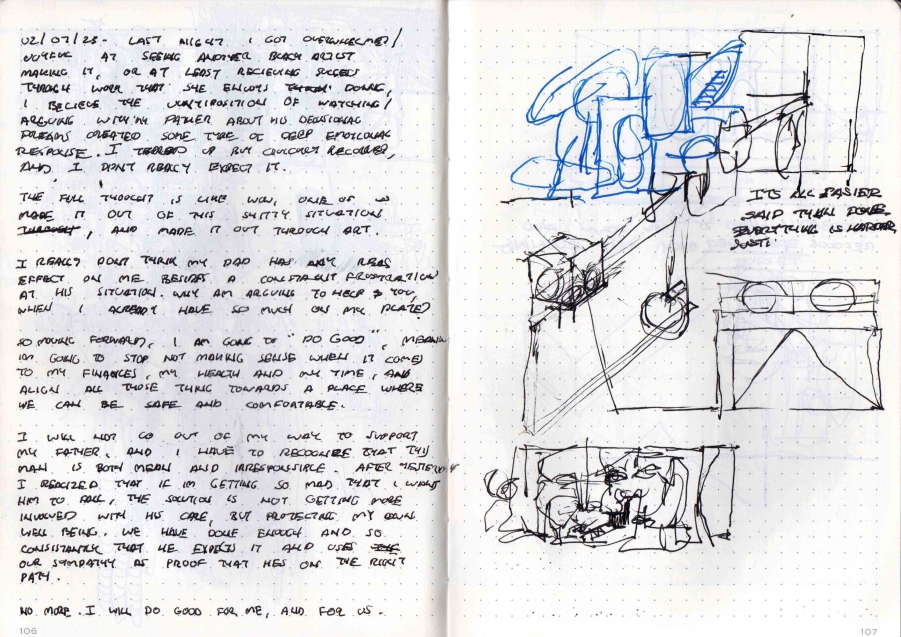 02/07/23 - LAST NIGHT I GOT OVERWHELMED/
JOYFUL AT SEEING ANOTHER BLACK ARTIST
MAKING IT, OR AT LEAST RECIEVING SUCCESS
THROUGH WORK THAT SHE ENJOYS DOING,
I BELIEVE THE JUXTIPOSITION OF WATCHING/
ARGUING WITH MY FATHER ABOUT HIS DELUSIONAL
DREAMS CREATED SOME TYPE OF DEEP EMOTIONAL
RESPONSE. I UP BUT COULDN'T RECOVER,
AND I DIDN'T REALLY EXPECT IT.
THE FULL THOUGHT IS LIKE WOW, ONE OF US
MADE IT OUT OF THIS SHITTY SITUATION
THROUGH, AND MADE IT OUT THROUGH ART.
I REALLY DON'T THINK MY DAD HAS ANY REAL
EFFECT ON ME BESIDES A CONSTANT FRUSTRATION
AT HIS SITUATION. WHY AM ARGUING TO HELP YOU,
WHEN I ALREADY HAVE SO MUCH ON MY PLATE?
SO MOVING FORWARD, I AM GOING TO "DO GOOD", MEANING
IM GOING TO STOP NOT MAKING SENSE WHEN IT COMES
TO MY FINANCES, MY HEALTH AND MY TIME, AND
ALIGN ALL THOSE THING TOWARDS A PLACE WHERE
WE CAN BE SAFE AND COMFORTABLE.
I WILL NOT GO OUT OF MY WAY TO SUPPORT
MY FATHER, AND I HAVE TO RECOGNIZE THAT THIS
MAN IS BOTH MEAN AND IRRESPONSIBLE. AFTER YESTERDAY
I REALIZED THAT IF IM GETTING SO MAD THAT I WANT
HIM TO FAIL, THE SOLUTION IS NOT GETTING MORE
INVOLVED WITH HIS CARE, BUT PROTECTING MY OWN
WELL BEING. WE HAVE DONE ENOUGH AND SO
CONSISTANTLY THAT HE EXPECTS IT AND USES
OUR SYMPATHY AS PROOF THAT HES ON THE RIGHT
PATH.
NO MORE. I WILL DO GOOD FOR ME, AND FOR US.
106
ITS ALL EASIER
SAID THAN DONE.
EVERYTHING IS HARDER,
107